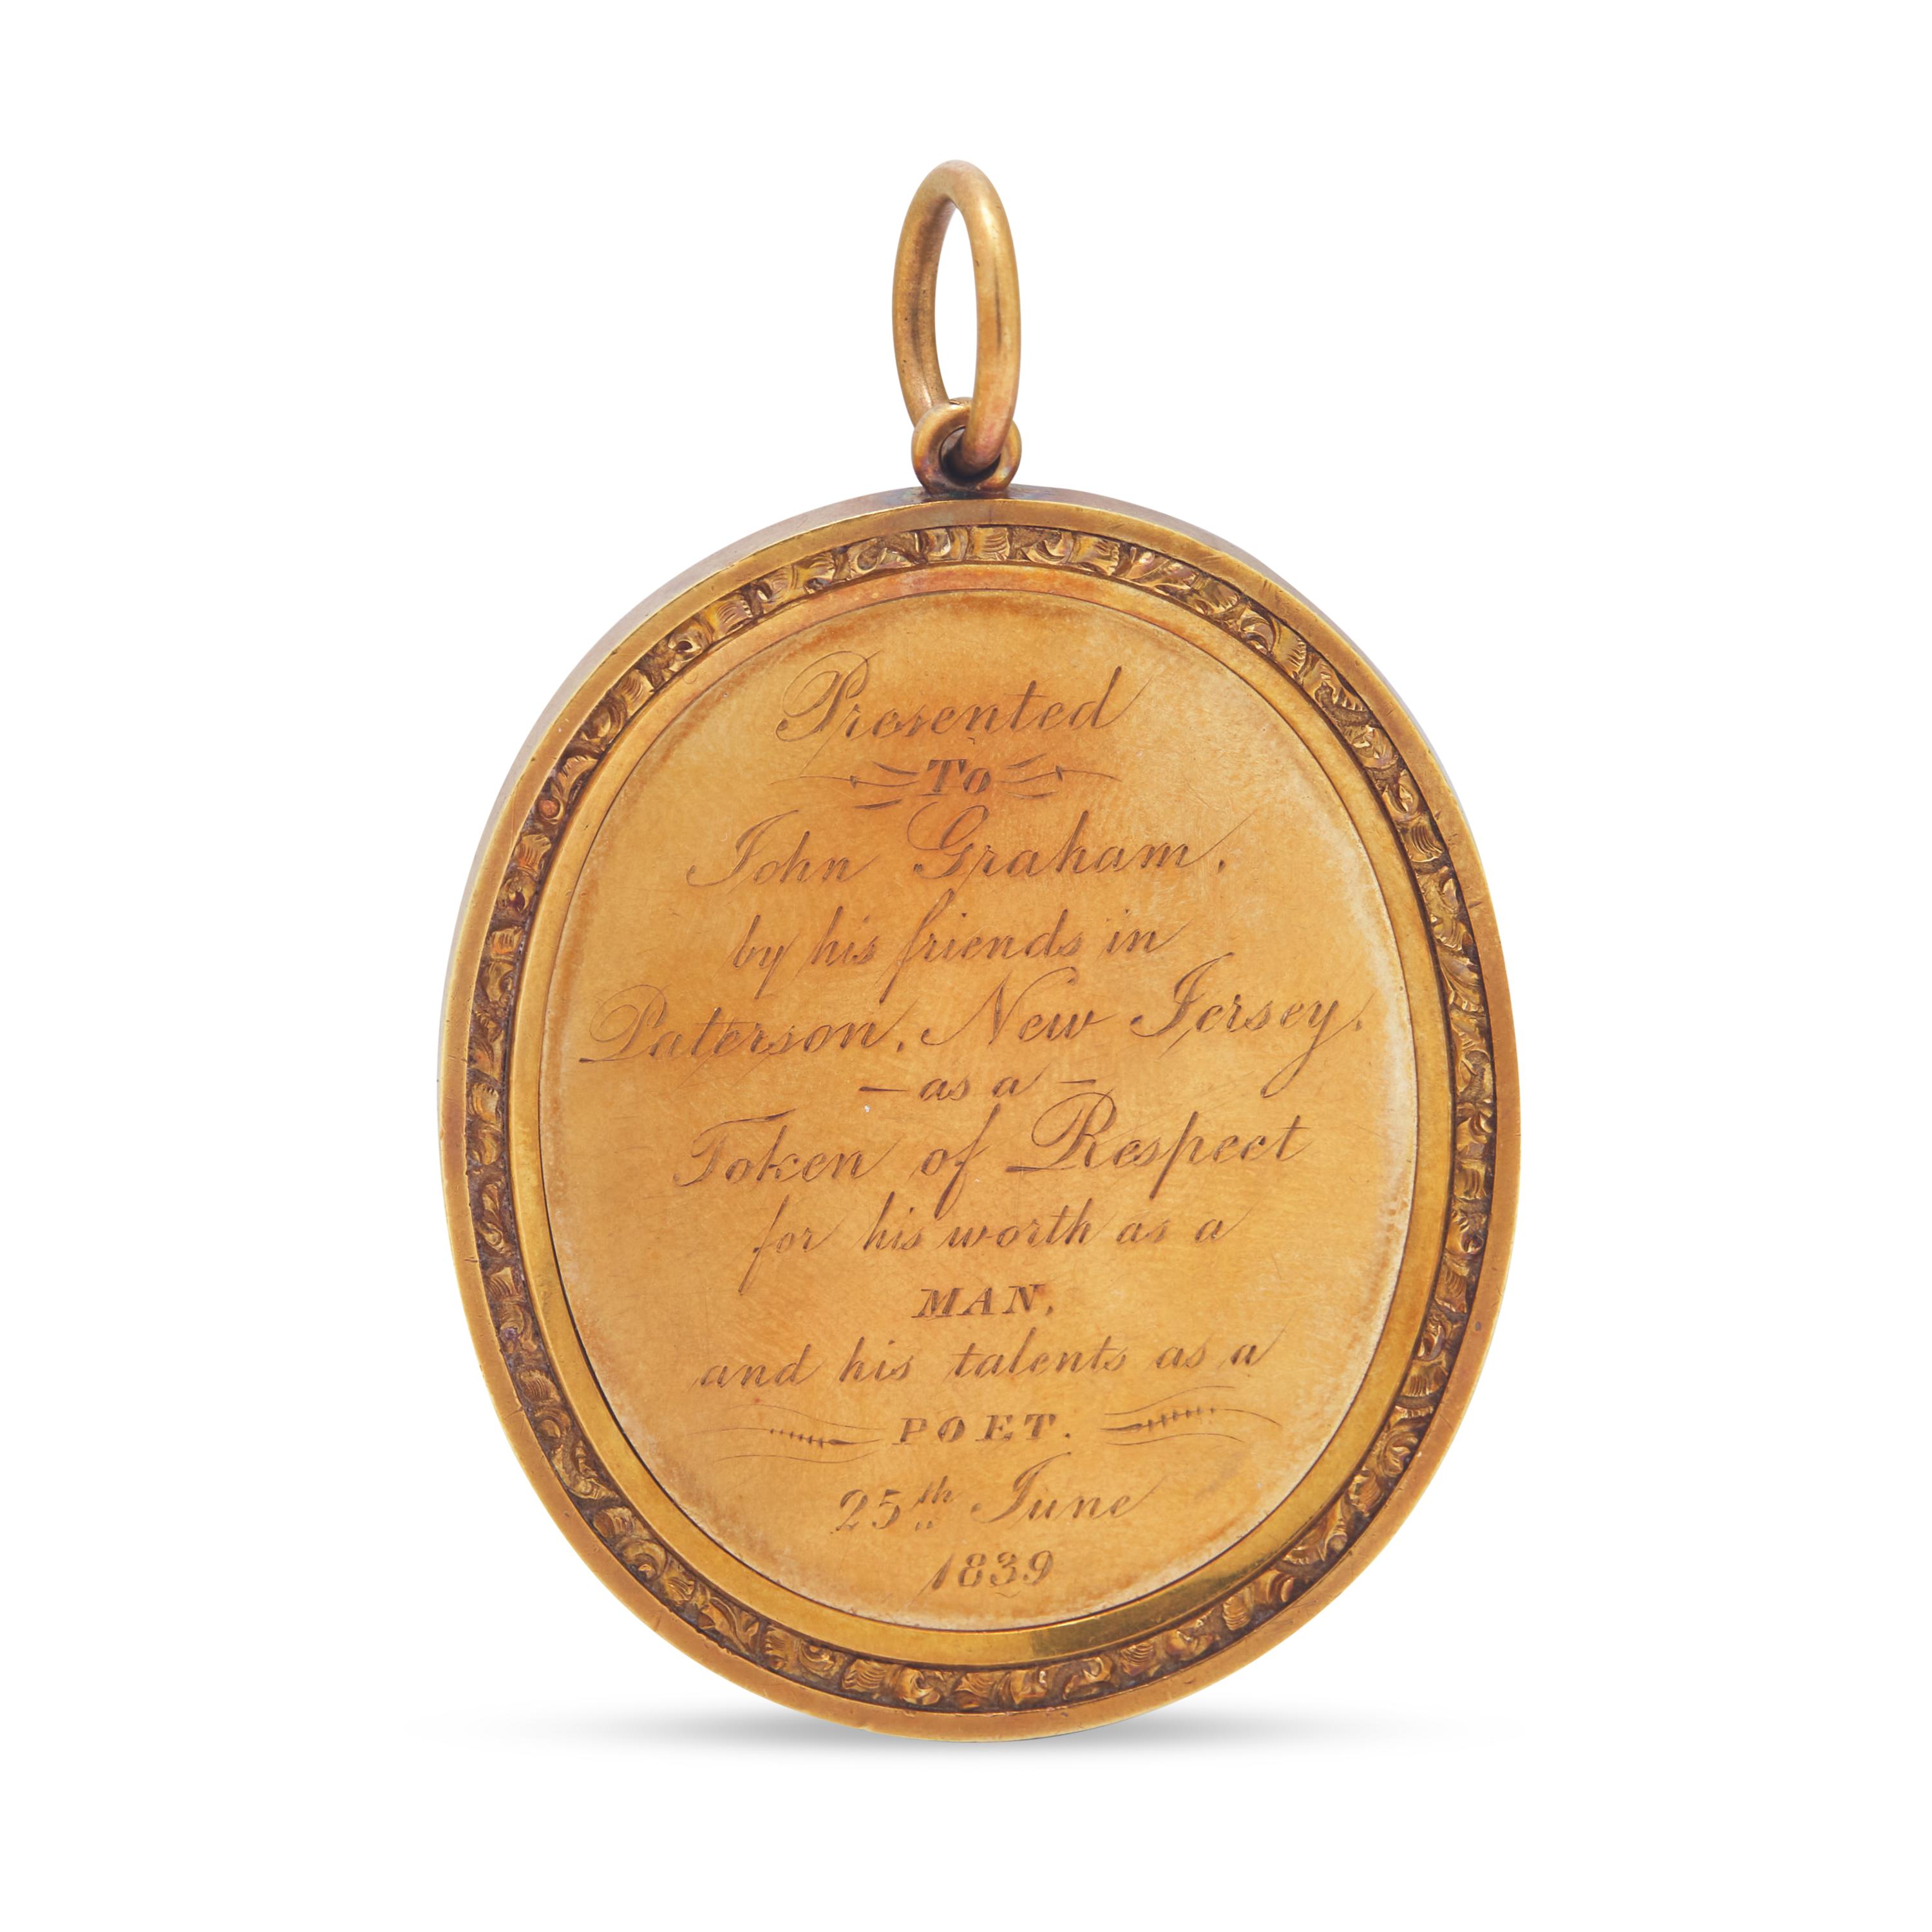 Presented
To
John Graham,
by his friends in
Paterson, New Jersey,
— as a —
Token of Respect
for his worth as a
MAN,
and his talents as a
POET.
25th June
1839